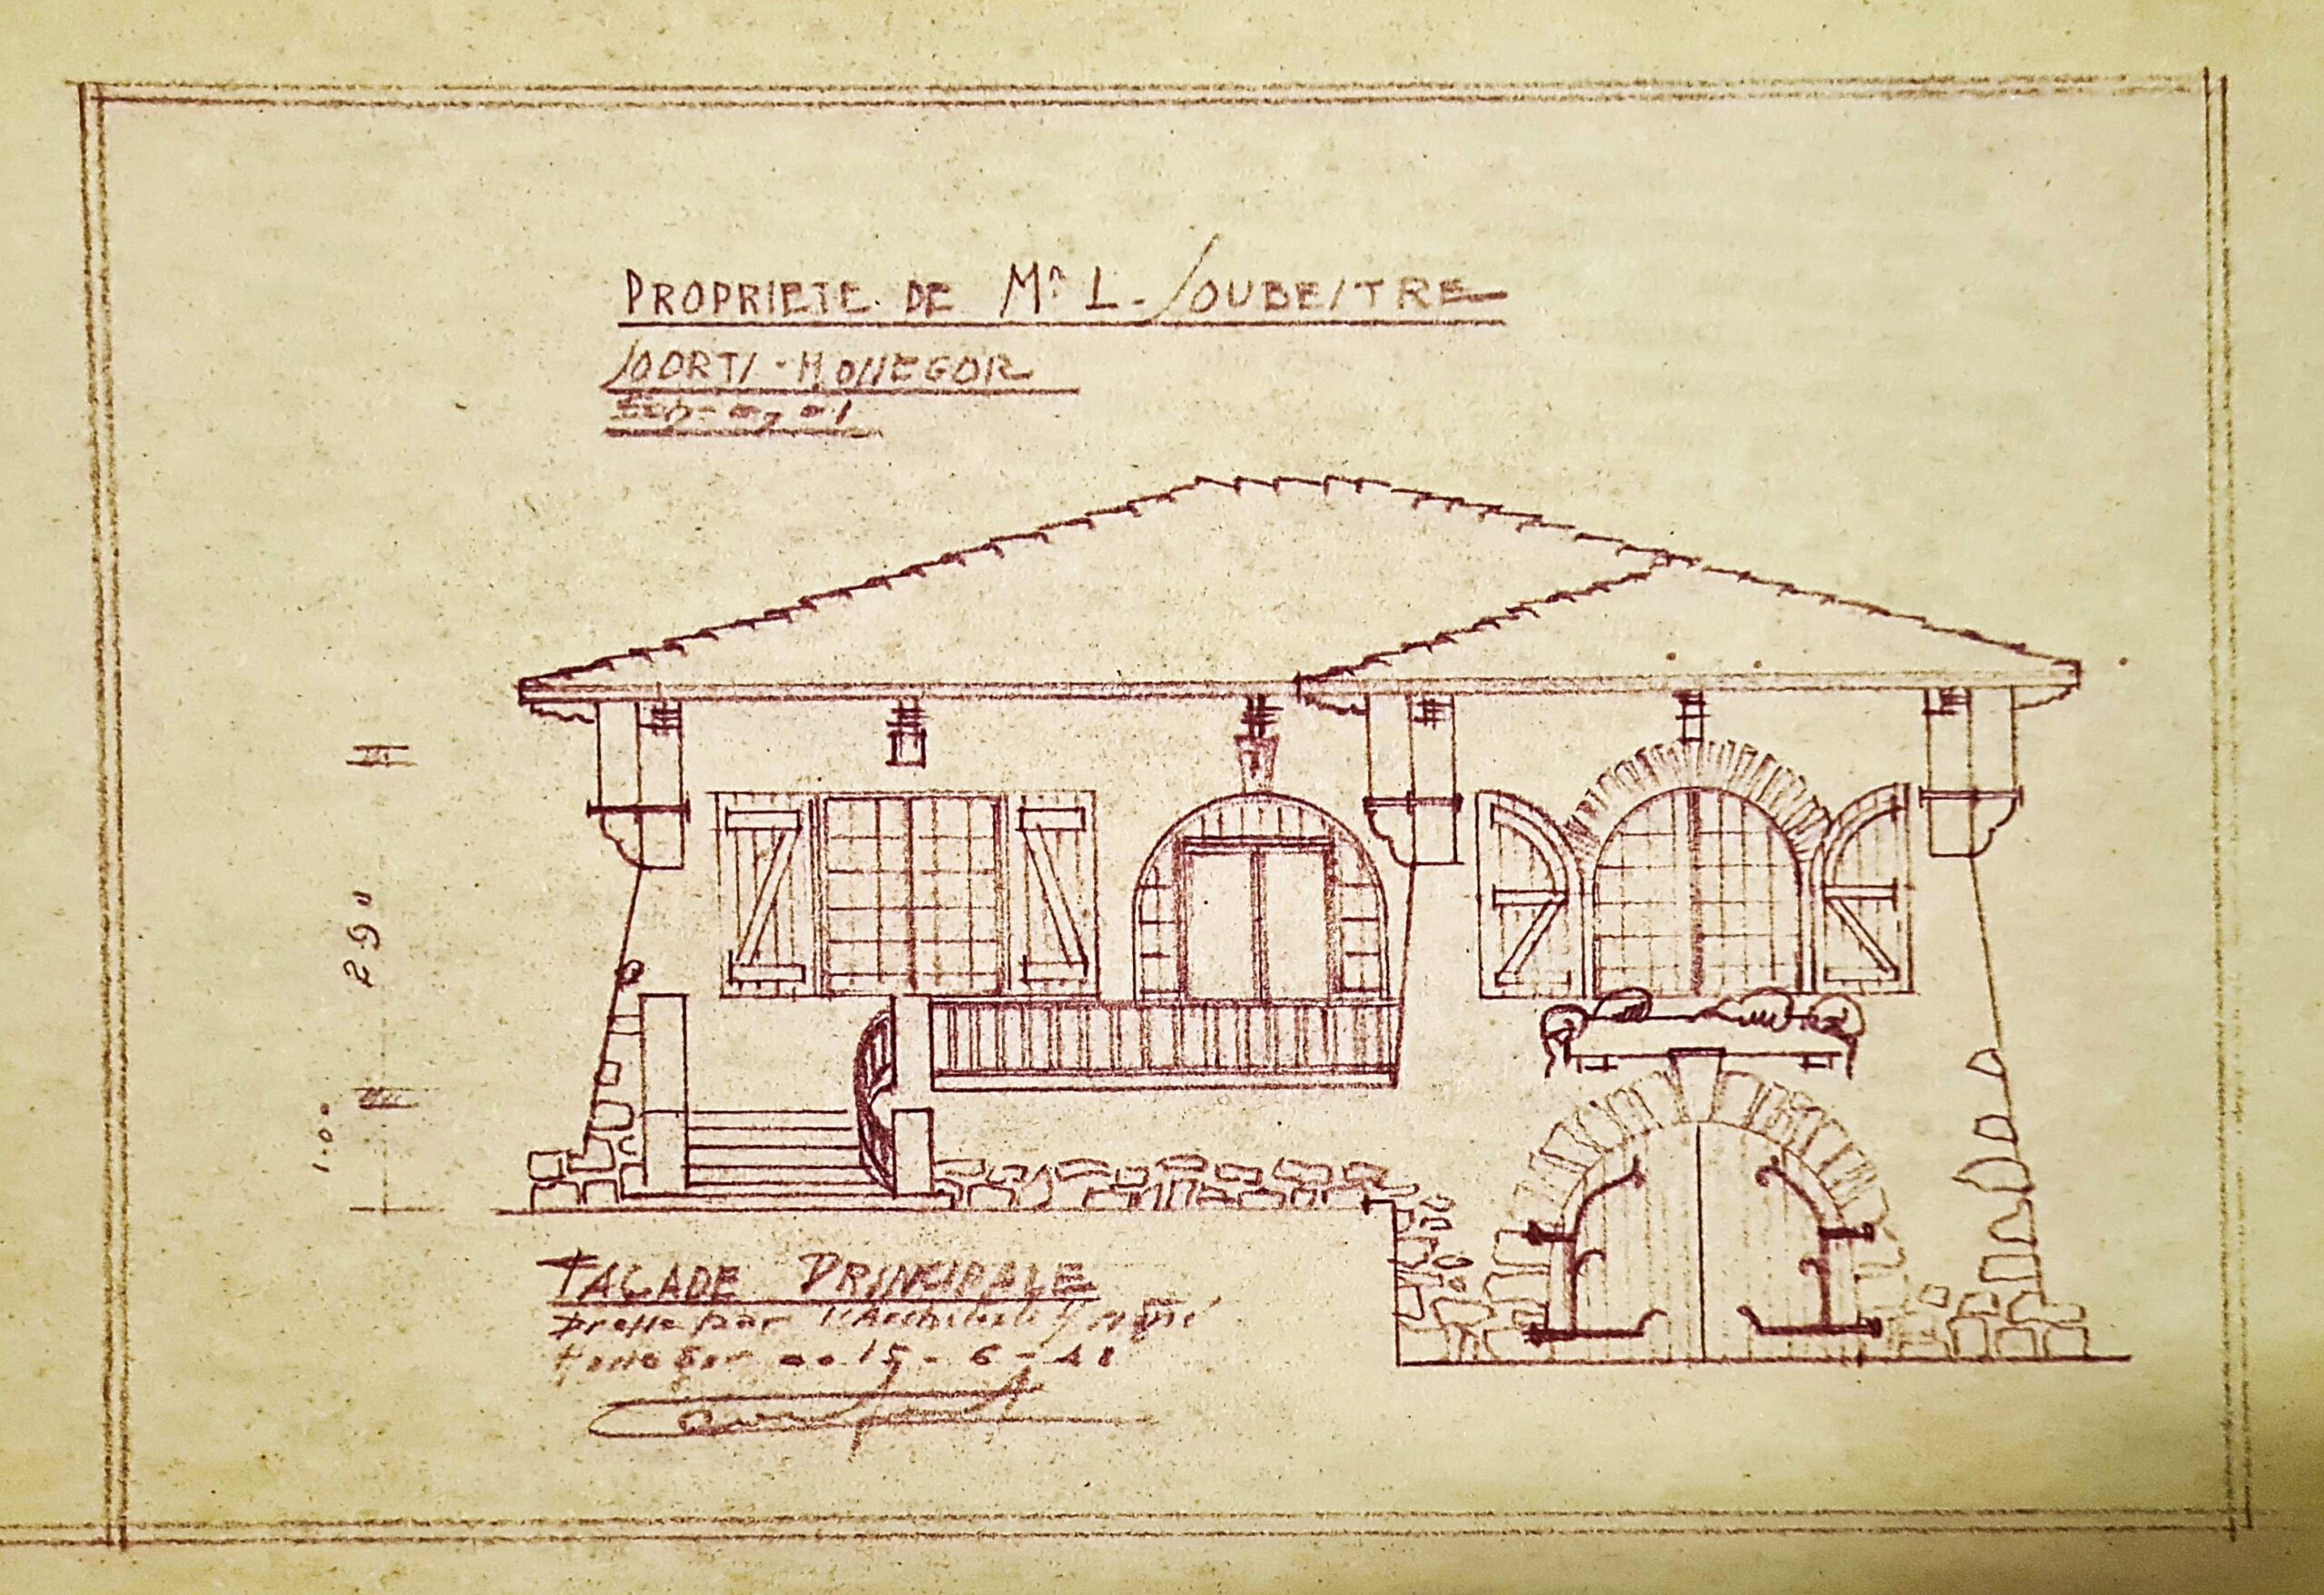 PROPRIETE DE Mr L. SOUBEITRE
SOORTS-HOSSEGOR
2.90
1.00
FAÇADE PRINCIPALE
Dressé par l'Architecte soussigné
Hossegor 15-6-48